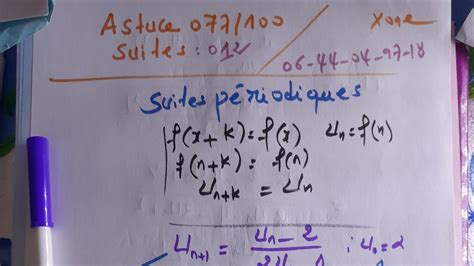 Astuce 077/100
Xone
Suites: 012
06-44-04-97-18
Suites périodiques
f(x+k)=f(x) Un=f(n)
f(n+k)=f(n)
Un+k = Un
Un+1 = Un-2 ; U0=2